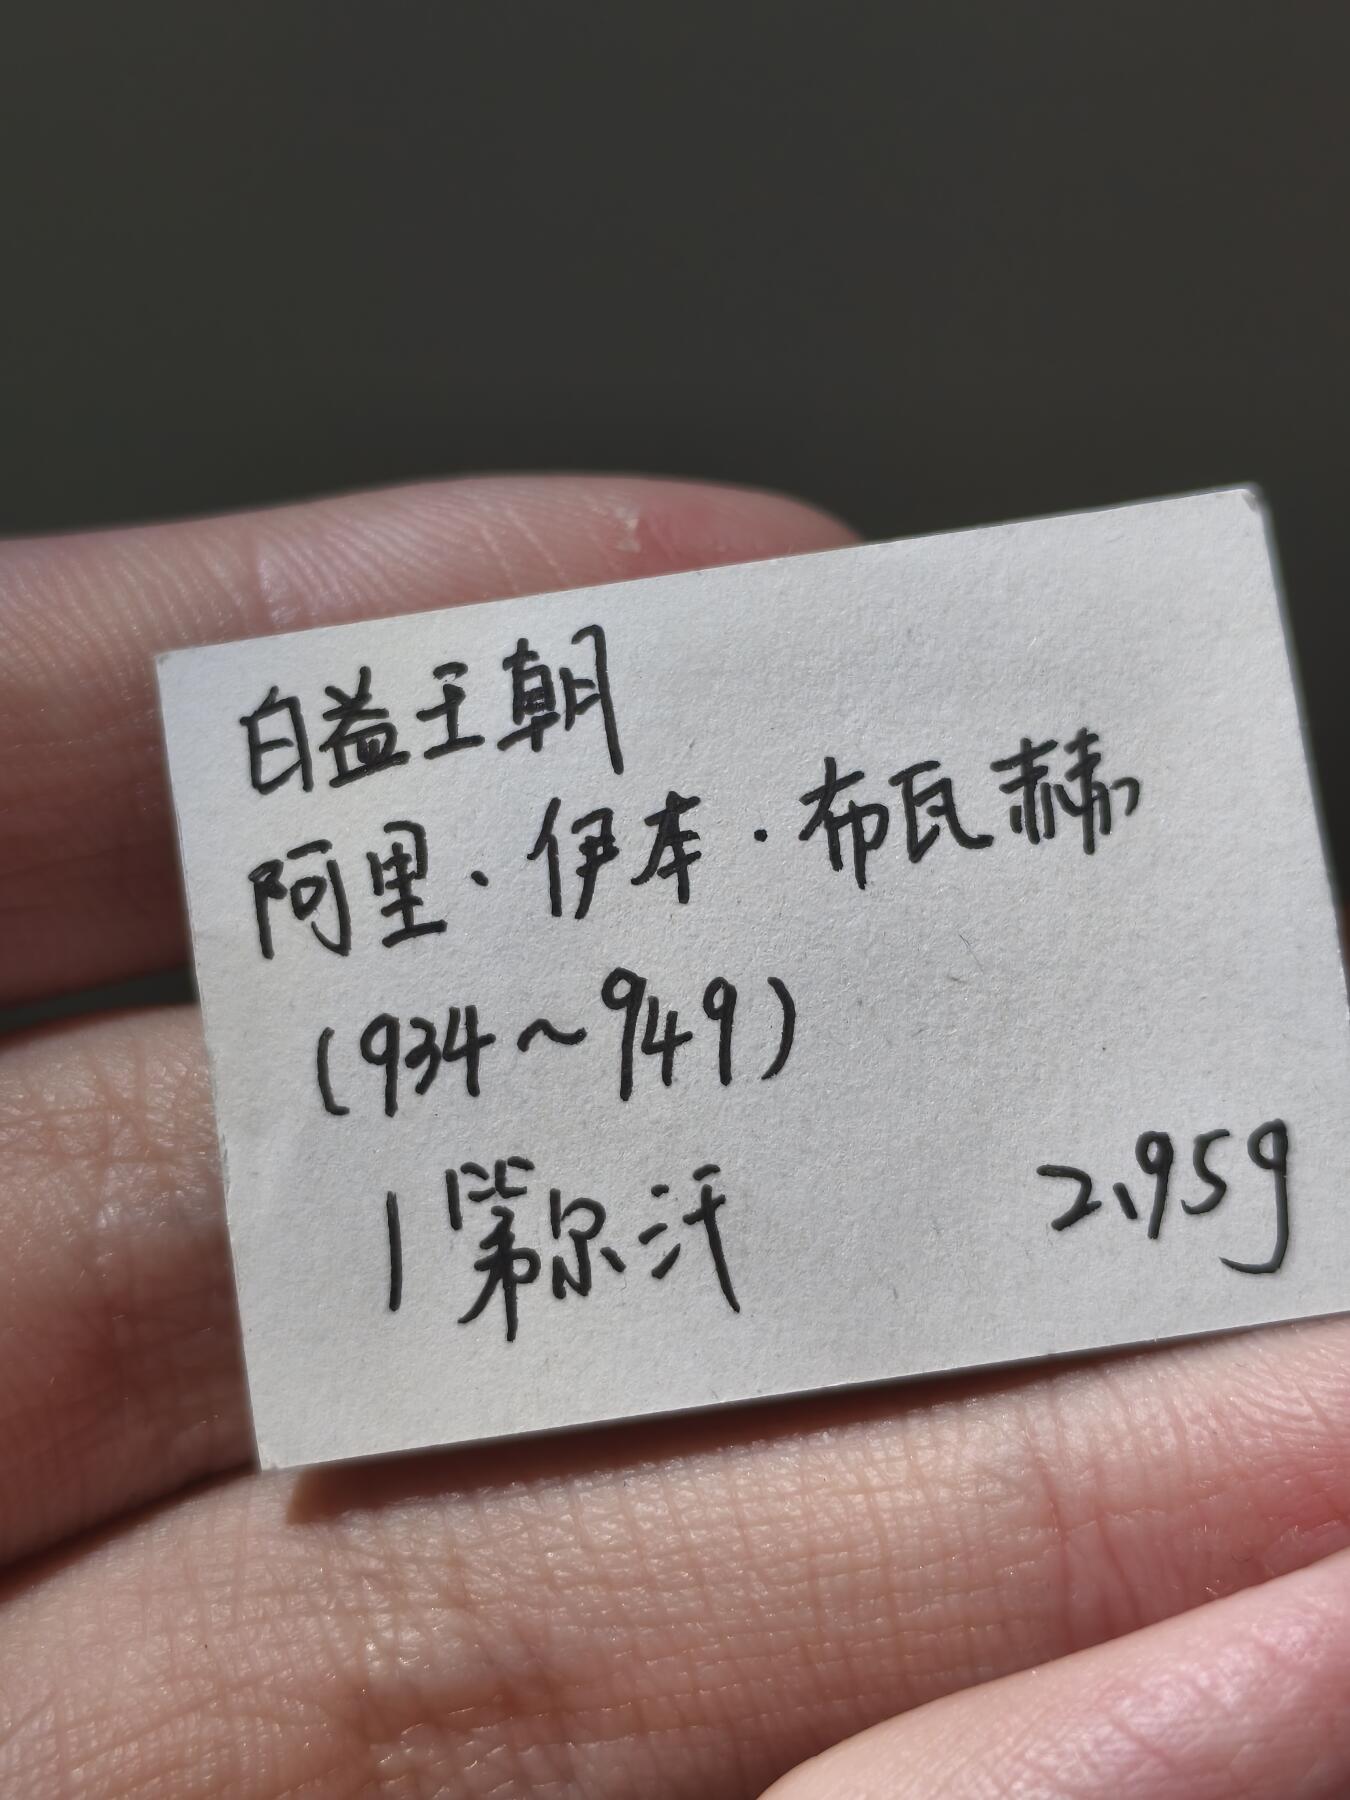 白益王朝
阿里·伊本·布瓦赫
(934~949)
1第尔汗 2.95g